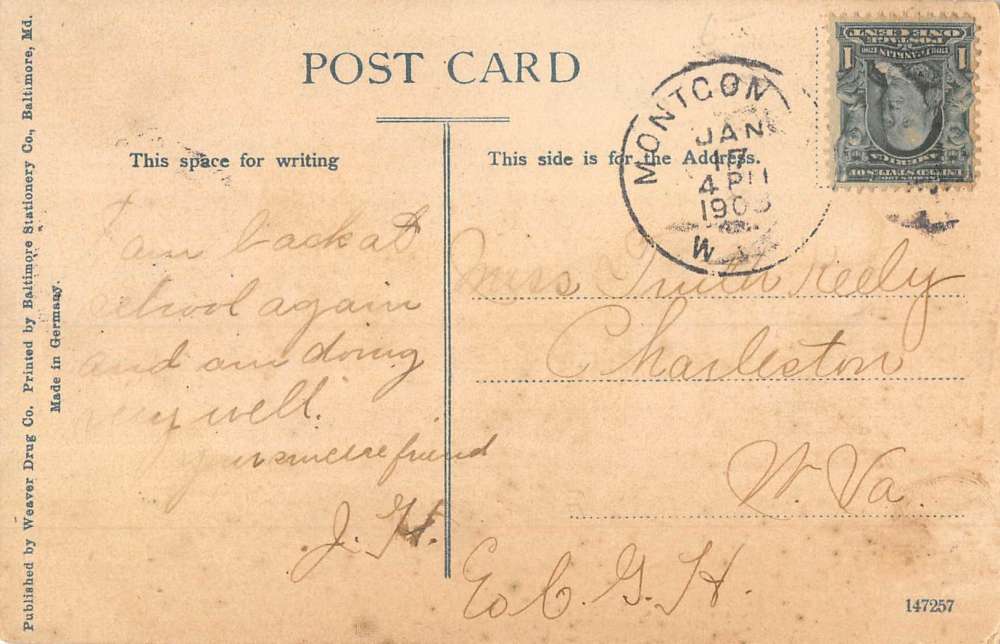 POST CARD
This space for writing
This side is for the Address.
I am back at
school again
and am doing
very well.
Your sincere friend
J. H.
Miss Truth Keely
Charleston
W. Va.
Co C. G. H.
MONTGOM
JAN
17
4 PM
1908
W.
ONE CENT
1
1
UNITED STATES OF
AMERICA
Published by Weaver Drug Co. Printed by Baltimore Stationery Co., Baltimore, Md.
Made in Germany.
147257